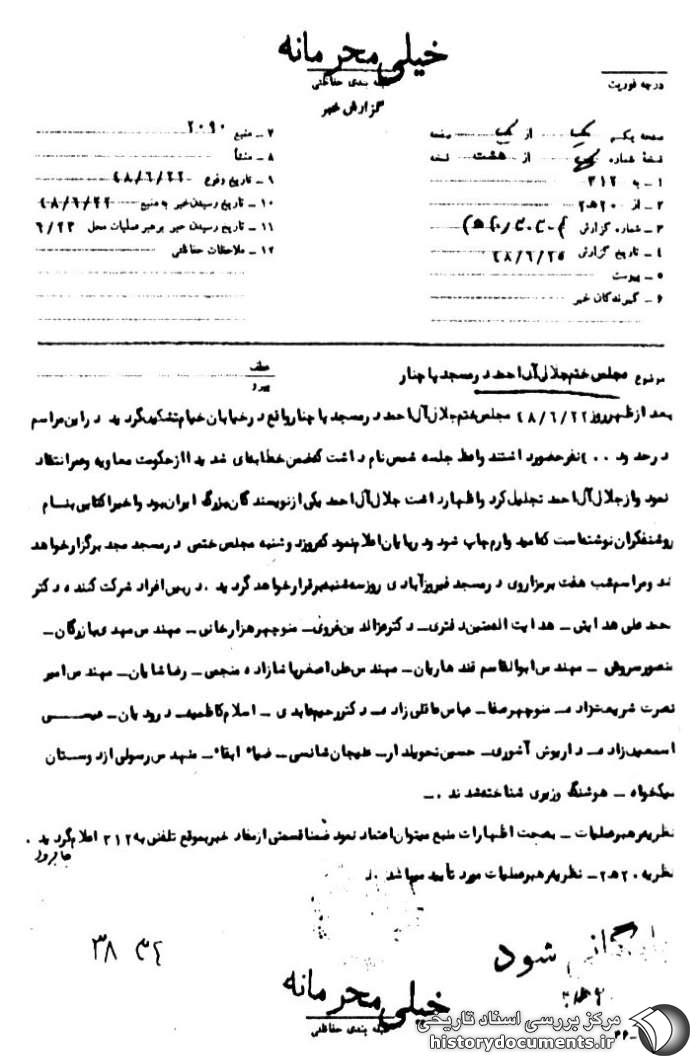 خیلی محرمانه
درجه فوریت
طبقه بندی حفاظتی
گزارش خبر
صفحه یکم از یک صفحه
نسخهٔ شماره از هشت نسخه
۱ ـ به ۳۱۲
۲ ـ از ۲۰ﻫ۲
۳ ـ شماره گزارش
۴ ـ تاریخ گزارش ۴۸/۶/۲۵
۵ ـ پیوست
۶ ـ گیرندگان خبر
۷ ـ منبع ۲۰۹۰
۸ ـ منشأ
۹ ـ تاریخ وقوع ۴۸/۶/۲۲
۱۰ ـ تاریخ رسیدن خبر به منبع ۴۸/۶/۲۲
۱۱ ـ تاریخ رسیدن خبر برهبر عملیات محل ۶/۲۳
۱۲ ـ ملاحظات حفاظتی
موضوع مجلس ختم جلال آل احمد در مسجد پاچنار
عطف
پیرو
بعد از ظهر روز ۴۸/۶/۲۲ مجلس ختم جلال آل احمد در مسجد پاچنار واقع در خیابان خیام تشکیل گردید در این مراسم
در حدود ۴۰۰ نفر حضور داشتند واعظ جلسه شمس نام داشت که ضمن خطابه‌ای شدیدا از حکومت معاویه و عمر انتقاد
نمود و از جلال آل احمد تجلیل کرد و اظهار داشت جلال آل احمد یکی از نویسندگان بزرگ ایران بود و اخیرا کتابی بنام
روشنفکران نوشته است که امیدوارم چاپ شود در پایان اعلام نمود که روز دوشنبه مجلس ختمی در مسجد مجد برگزار خواهد
شد و مراسم شب هفت بر مزار وی در مسجد فیروزآبادی روز سه شنبه برقرار خواهد گردید . در بین افراد شرکت کننده دکتر
محمد علی هدایتی ـ هدایت اله متین دفتری ـ دکتر عزالدین فروی ـ منوچهر هزارخانی ـ مهندس مهدی بازرگان ـ
منصور سروش ـ مهندس ابوالقاسم قندهاریان ـ مهندس علی اصغر پاشازاده منجمی ـ رضا شایان ـ مهندس امیر
نصرت شریعت‌نژاد ـ منوچهر صفا ـ عباس عاقلی زاده ـ دکتر رحیم عابدی ـ اسلام کاظمیه ـ درودیان ـ عیسی
اسمعیل زاده ـ داریوش آشوری ـ حسین تحویلدار ـ علیجان شانسی ـ ضیاء ابقاء ـ مهندس رسولی از دوستان
نیکخواه ـ هوشنگ وزیری شناخته شدند . ـ
نظریه رهبر عملیات ـ بصحت اظهارات منبع میتوان اعتماد نمود ضمنا قسمتی از مفاد خبر بموقع تلفنی به ۳۱۲ اعلام گردید .
نظریه ۲۰ﻫ۲ ـ نظریه رهبر عملیات مورد تأیید میباشد . ـ
شود
خیلی محرمانه
طبقه بندی حفاظتی
مرکز بررسی اسناد تاریخی
historydocuments.ir